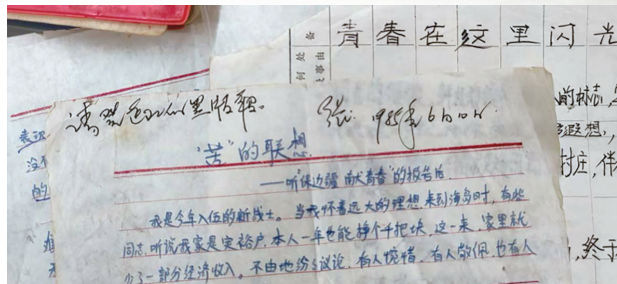 备
青春在这里闪光
事由
何处
的标志,
想,
村庄,伟
,终于
表现
没有
的
张 1985年6月10日
“苦”的联想
——听“保边疆 献青春”的报告后
我是今年入伍的新战士。当我怀着远大的理想来到海岛时,有些
同志听说我家是专业户,本人一年也能挣个千把块,这一来,家里就
少了一部分经济收入,不由地纷纷议论,有人惋惜,有人敬佩,也有人